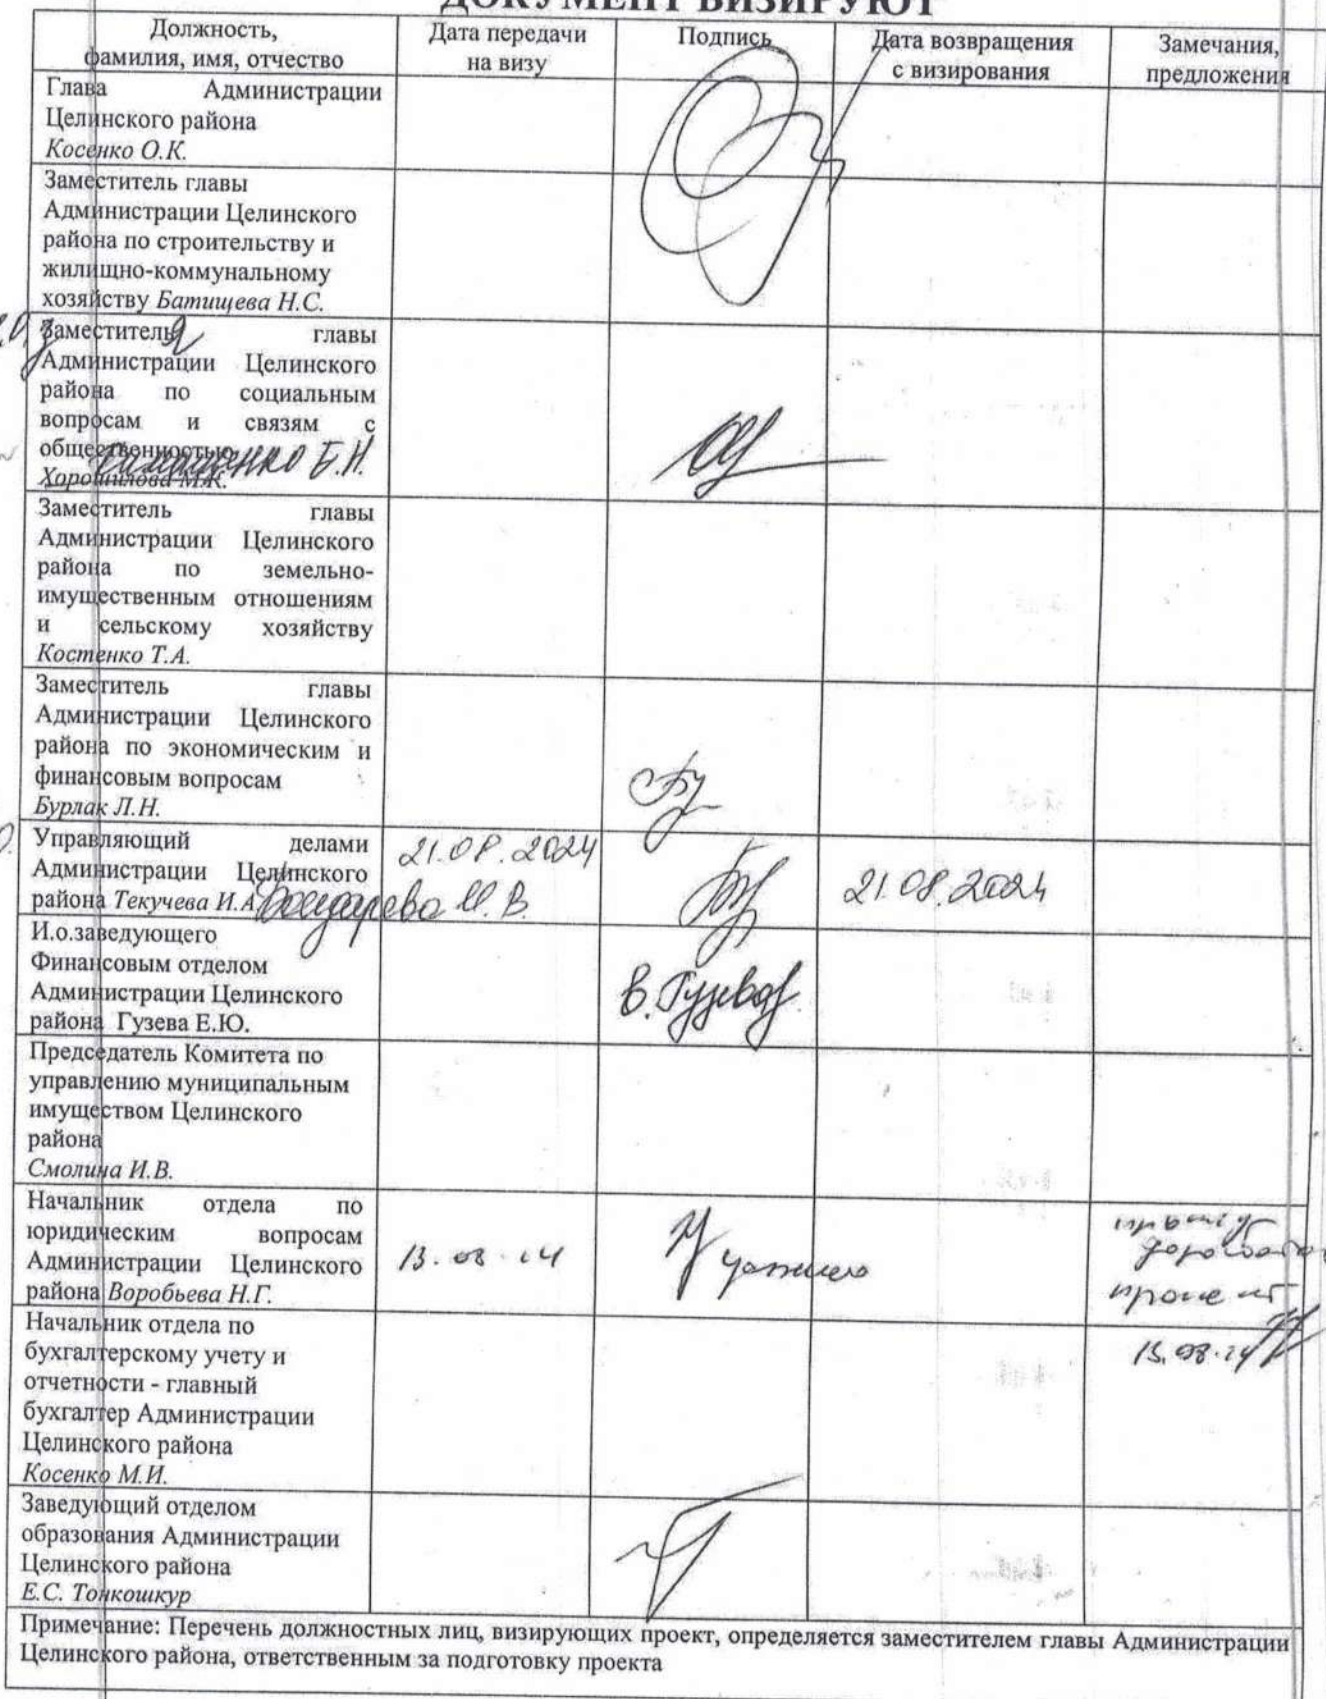 ДОКУМЕНТ ВИЗИРУЮТ
Должность,
фамилия, имя, отчество
Дата передачи
на визу
Подпись
Дата возвращения
с визирования
Замечания,
предложения
Глава Администрации
Целинского района
Косенко О.К.
Заместитель главы
Администрации Целинского
района по строительству и
жилищно-коммунальному
хозяйству Батищева Н.С.
Заместитель главы
Администрации Целинского
района по социальным
вопросам и связям с
общественностью
Хорошилова М.К.
Б.Н.
Заместитель главы
Администрации Целинского
района по земельно-
имущественным отношениям
и сельскому хозяйству
Костенко Т.А.
Заместитель главы
Администрации Целинского
района по экономическим и
финансовым вопросам
Бурлак Л.Н.
Управляющий делами
Администрации Целинского
района Текучева И.А.
Бондарева И.В.
21.08.2024
21.08.2024
И.о.заведующего
Финансовым отделом
Администрации Целинского
района Гузева Е.Ю.
Е.Гузева
Председатель Комитета по
управлению муниципальным
имуществом Целинского
района
Смолина И.В.
Начальник отдела по
юридическим вопросам
Администрации Целинского
района Воробьева Н.Г.
13.08.24
13.08.24
Начальник отдела по
бухгалтерскому учету и
отчетности - главный
бухгалтер Администрации
Целинского района
Косенко М.И.
Заведующий отделом
образования Администрации
Целинского района
Е.С. Тонкошкур
Примечание: Перечень должностных лиц, визирующих проект, определяется заместителем главы Администрации
Целинского района, ответственным за подготовку проекта